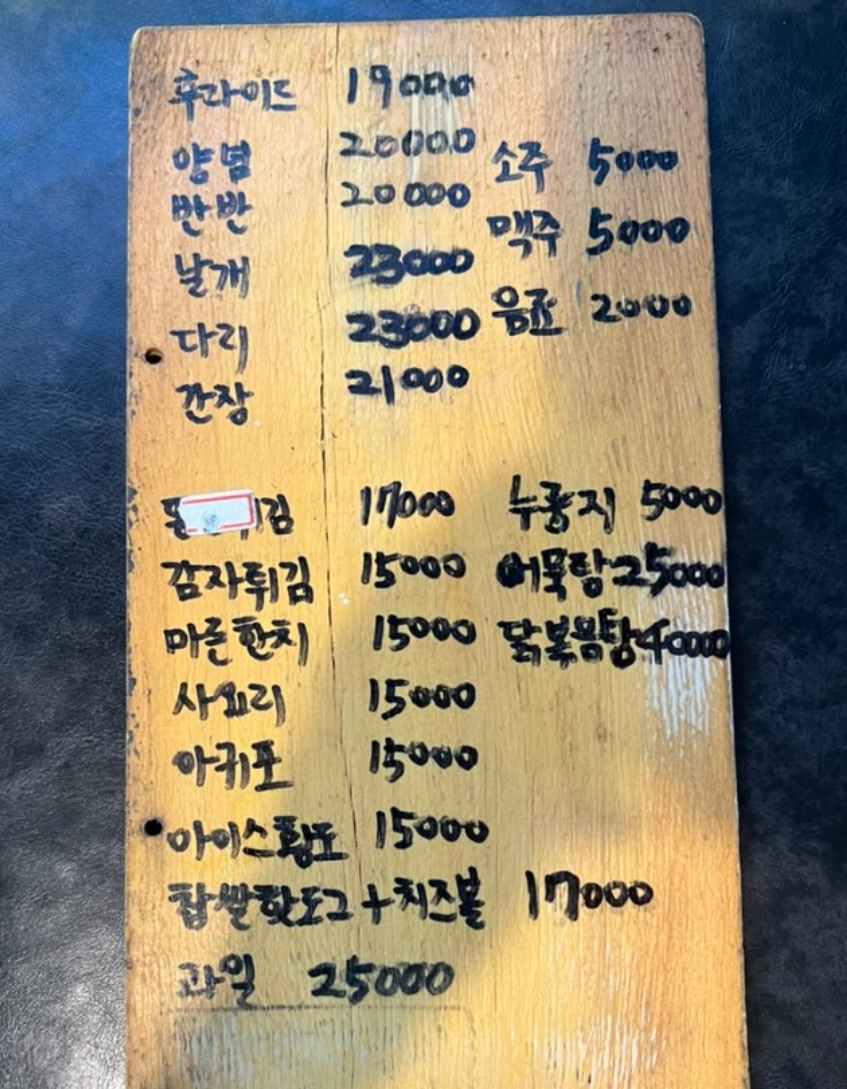 후라이드 19000
양념 20000
소주 5000
반반 20000
맥주 5000
날개 23000
음료 2000
다리 23000
간장 21000
김 17000
누룽지 5000
감자튀김 15000
어묵탕 25000
마른한치 15000
닭볶음탕 40000
사요리 15000
아귀포 15000
아이스황도 15000
찹쌀핫도그+치즈볼 17000
과일 25000